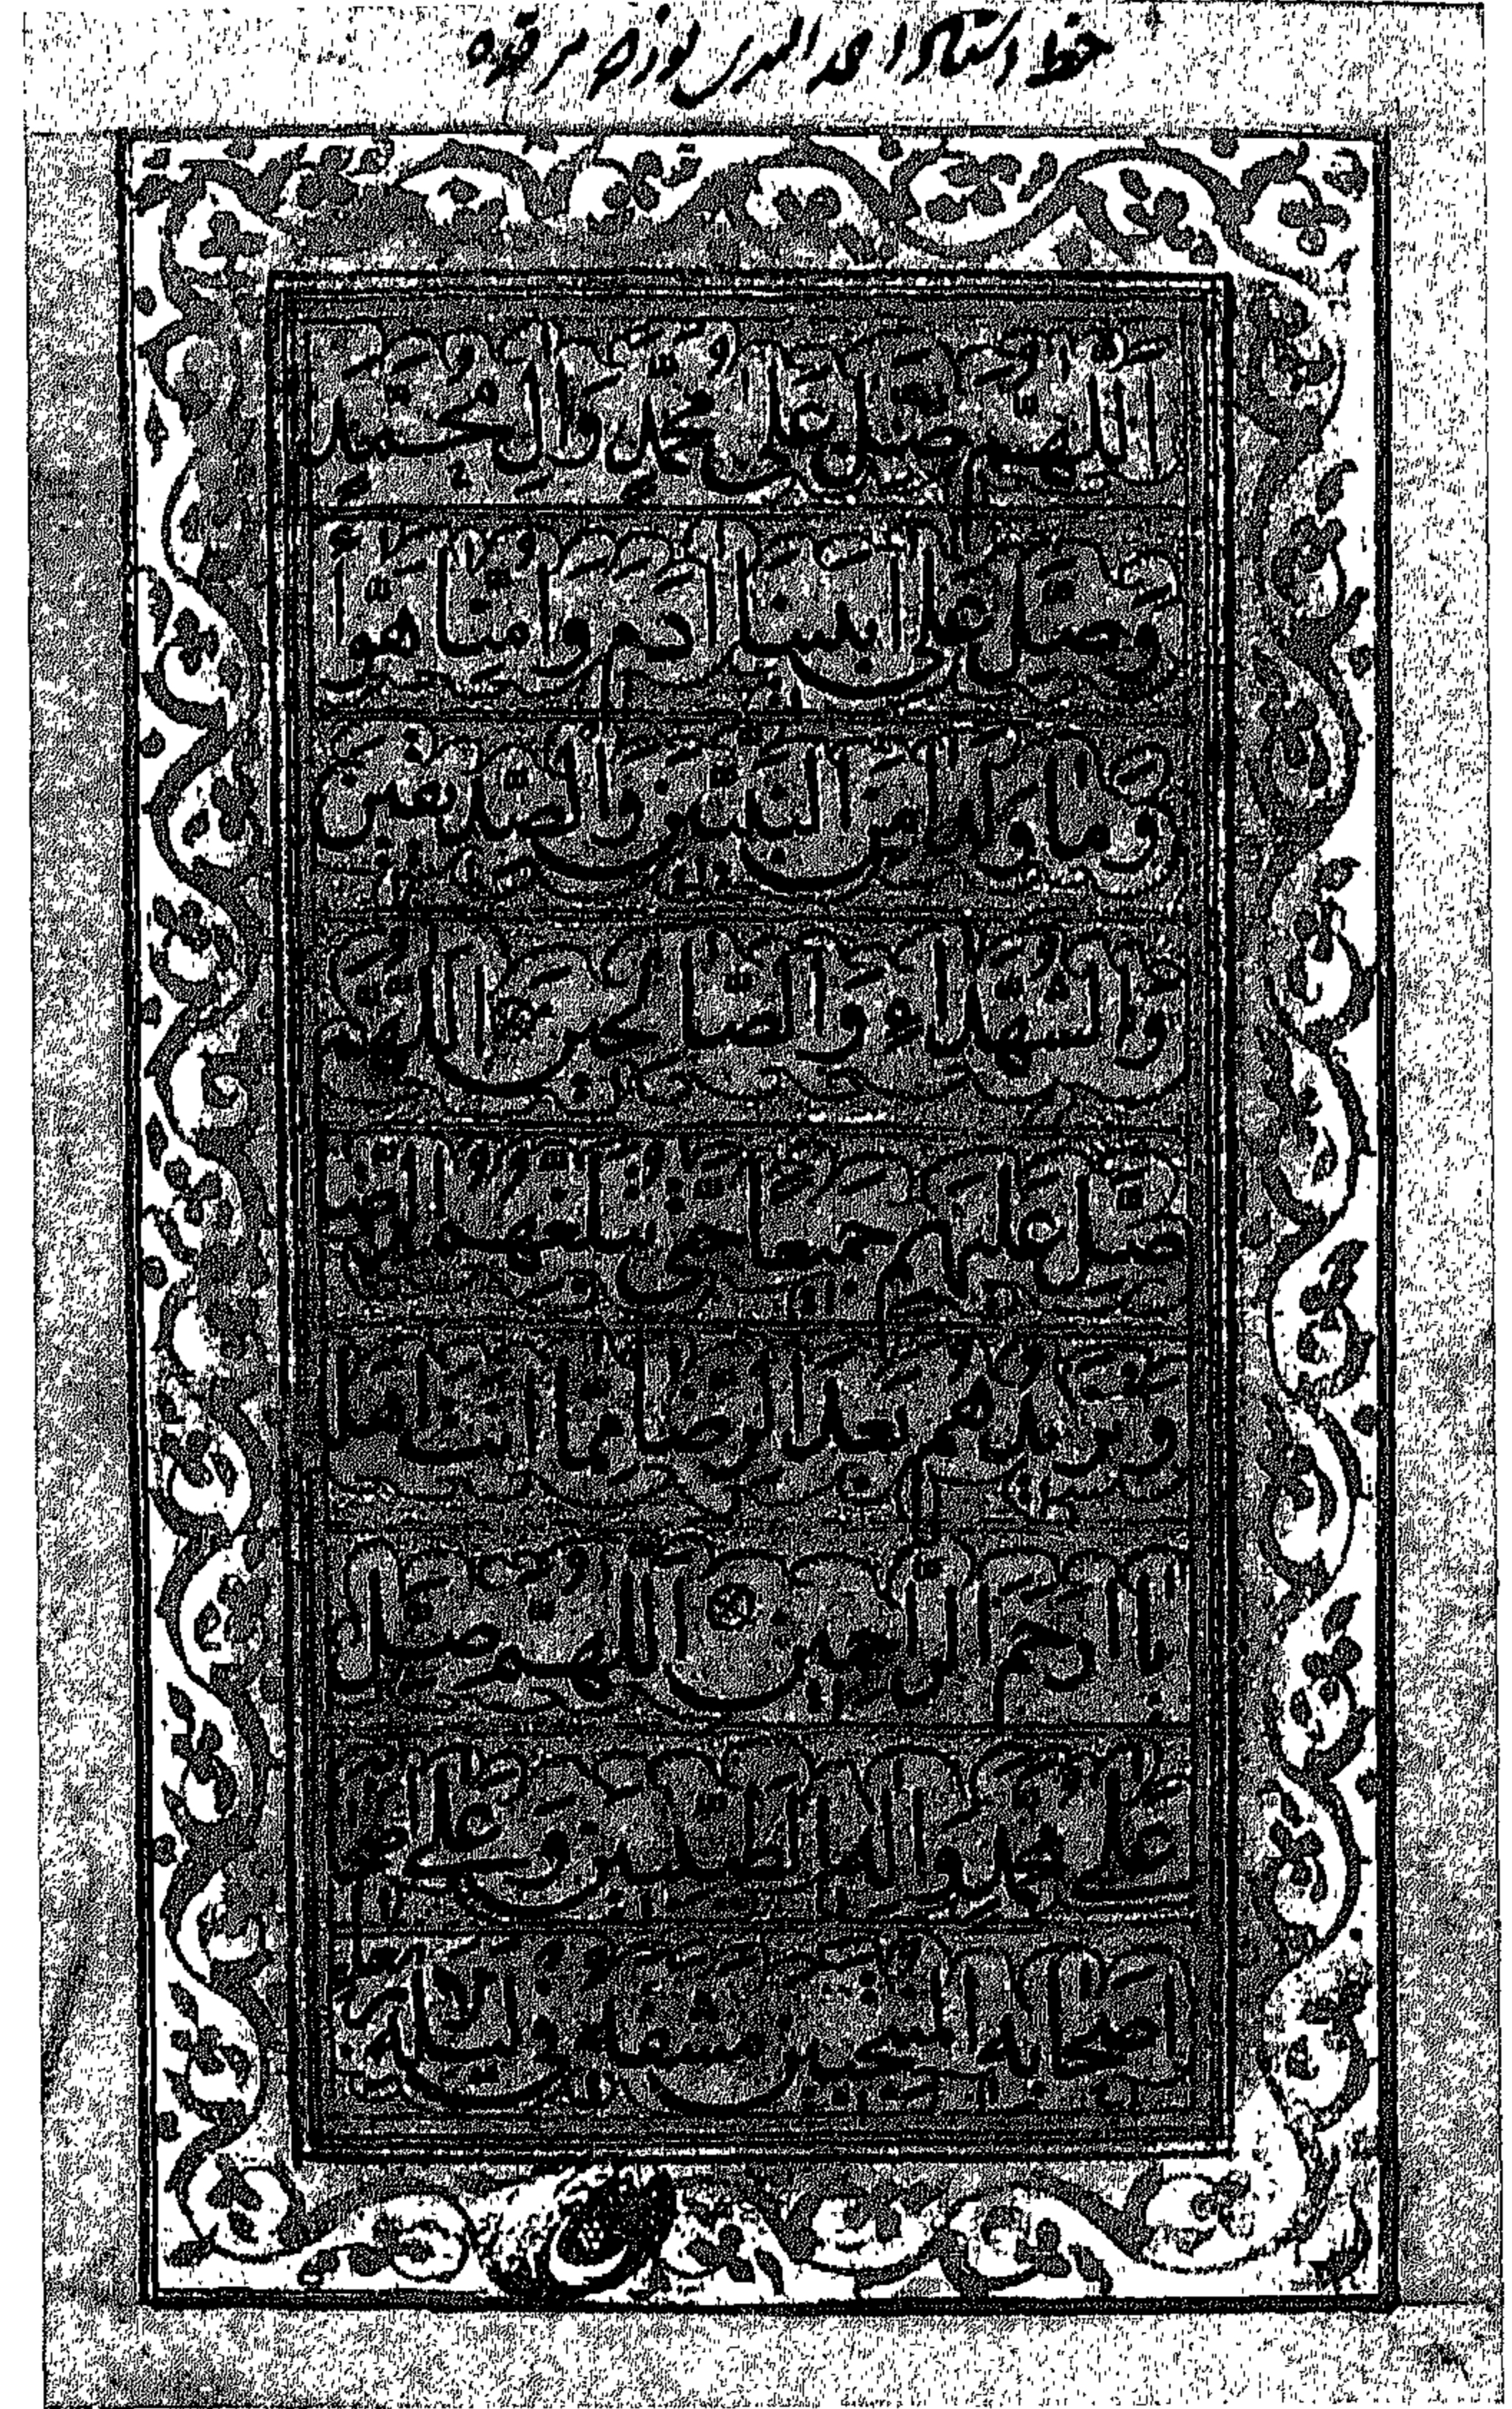 خط استاد احمد النیریزی نور مرقده
اَللّٰهُمَّ صَلِّ عَلٰى مُحَمَّدٍ وَاٰلِ مُحَمَّدٍ
وَصَلِّ عَلٰى اَبِينَا اٰدَمَ وَاُمِّنَا هَوَّاءَ
وَمَا وَلَدَا مِنَ النَّبِيّينَ وَالصِّدّيقينَ
وَالشُّهَدَاءِ وَالصَّالِحينَ اَللّٰهُمَّ
صَلِّ عَلَيْهِمْ جَميعًا حَتّٰى تُبَلِّغَهُمُ الرِّضَا
وَتَزيدَهُمْ بَعْدَ الرِّضَا مِمَّا اَنْتَ اَهْلُهُ
يَا اَرْحَمَ الرَّاحِمينَ اَللّٰهُمَّ صَلِّ
عَلٰى مُحَمَّدٍ وَاٰلِهِ الطَّيِّبينَ وَعَلٰى
اَصْحَابِهِ الْمُنْتَجَبينَ